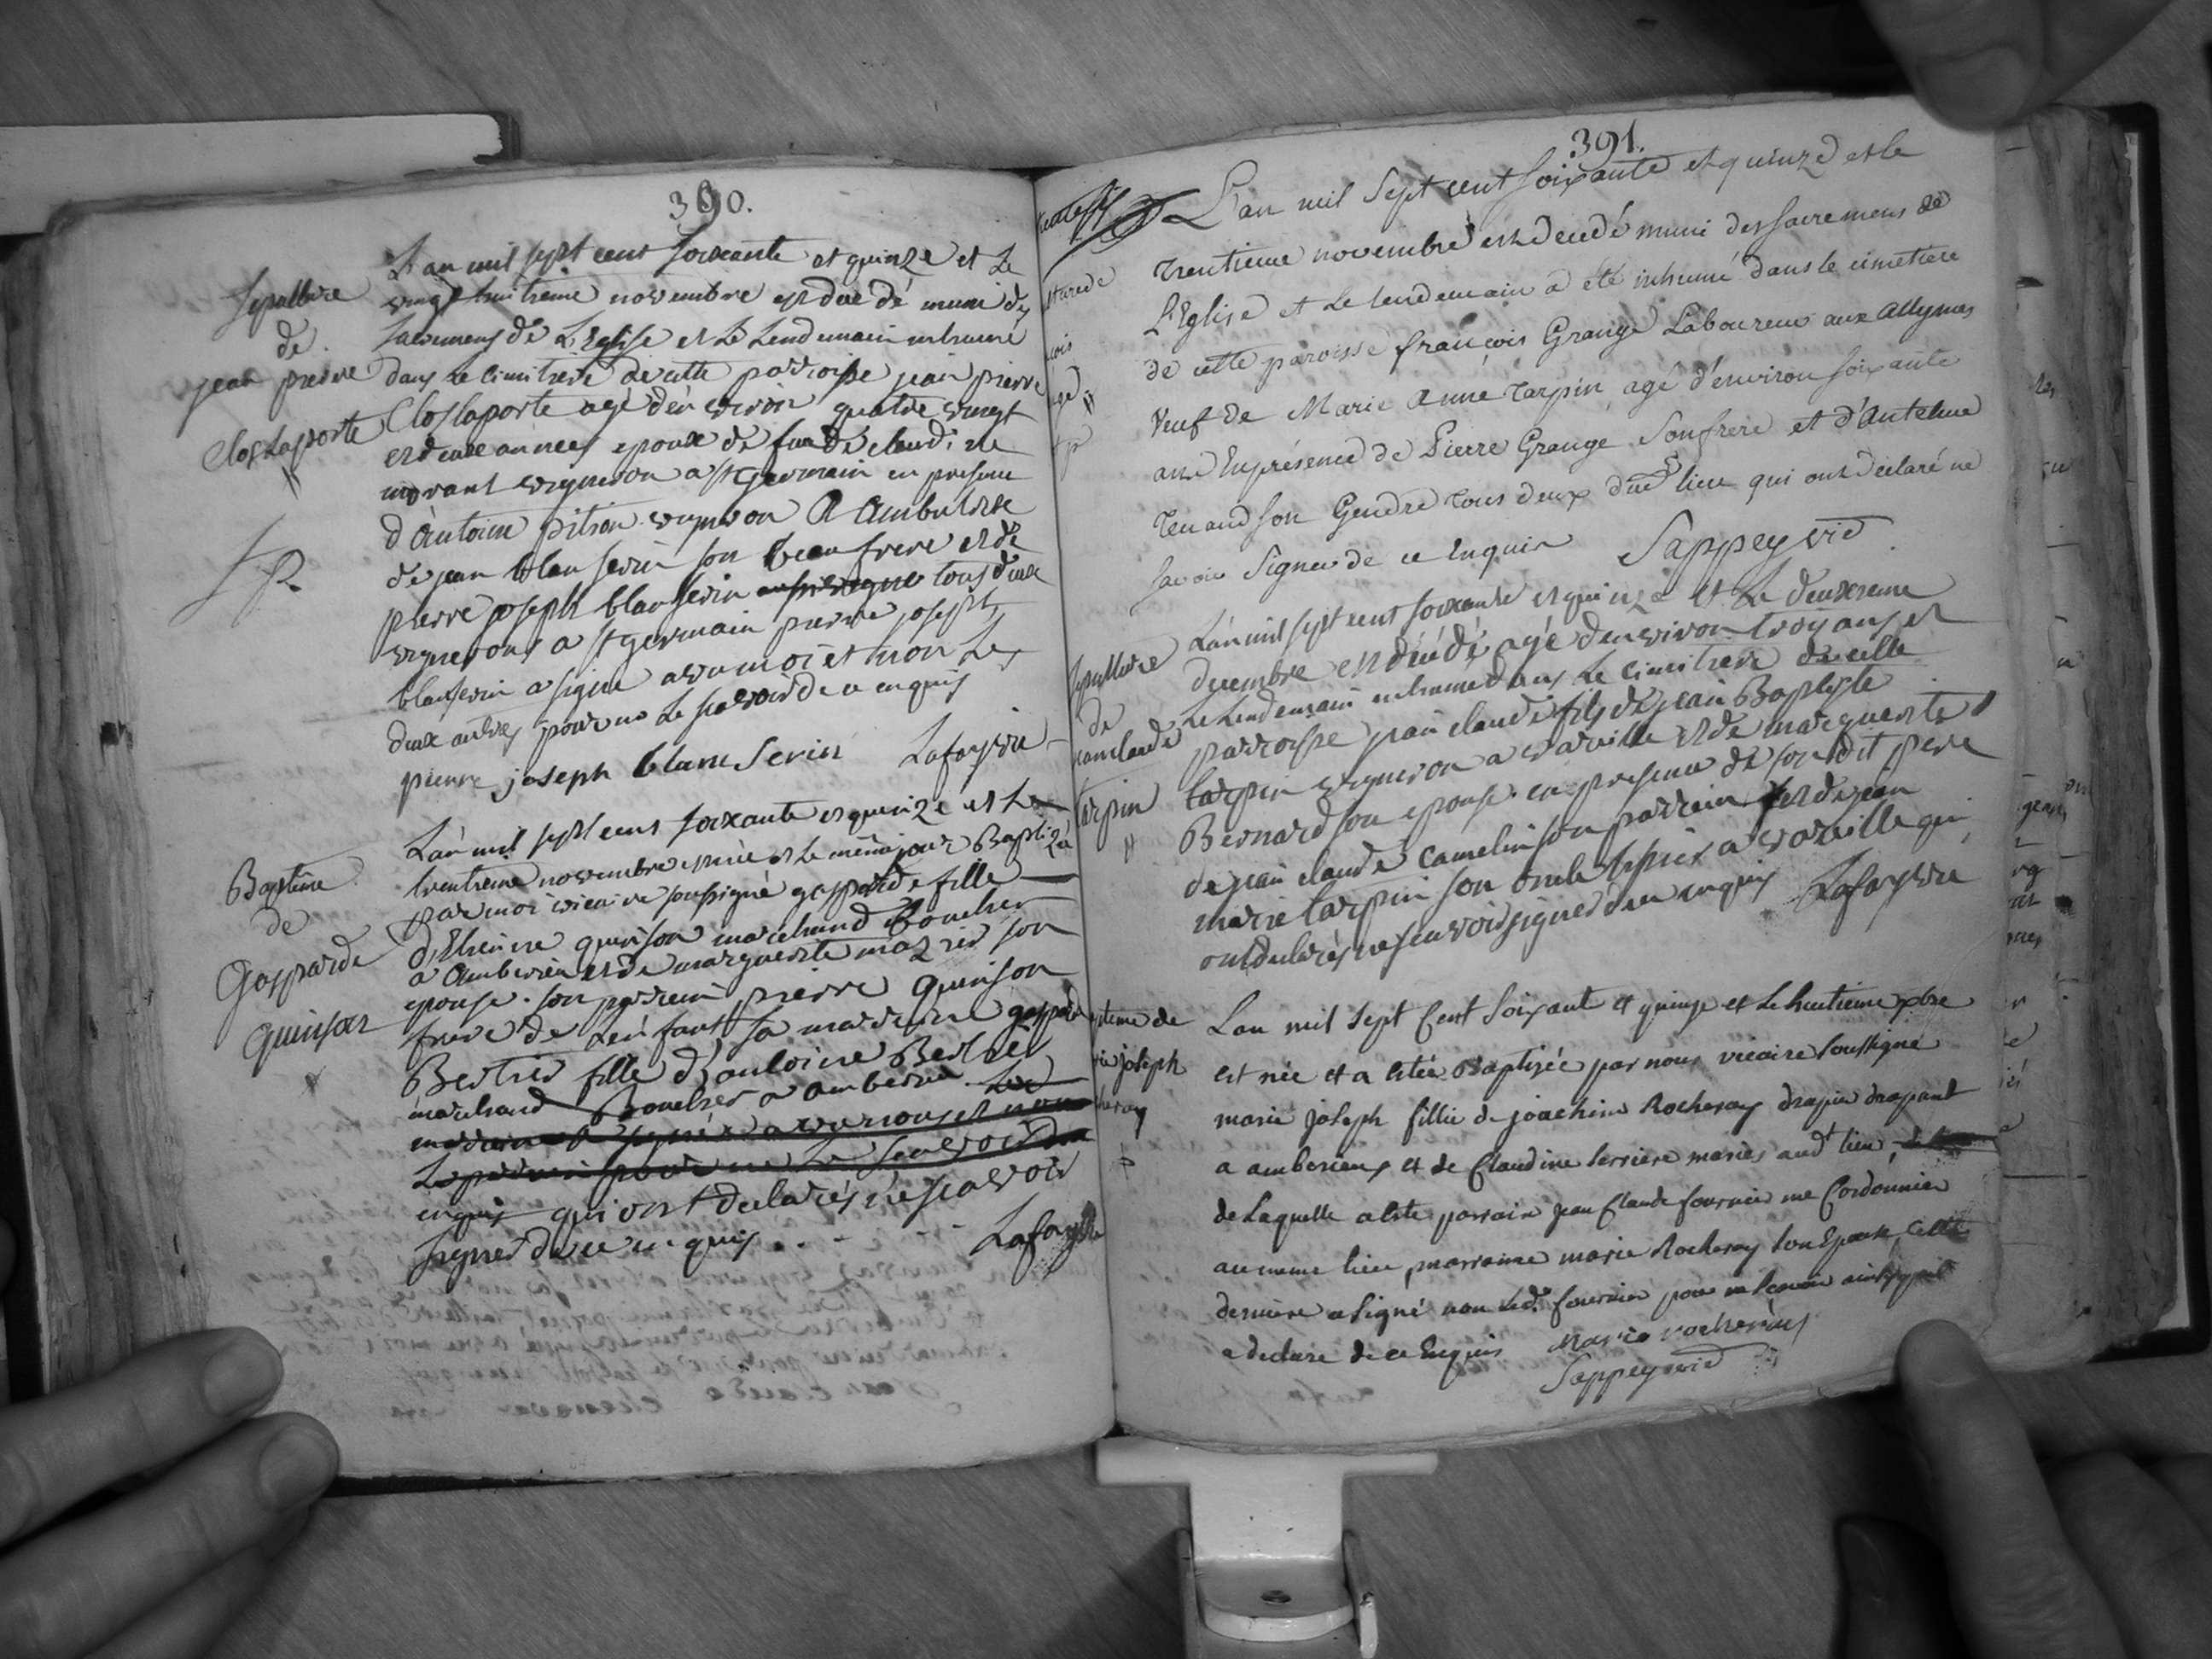 390.
Sepulture
de
jean pierre
Closlaporte
L'an mil sept cent soixante et quinze et Le
vingt huitieme novembre est decedé muni des
sacremens de L'Eglise et Le Lendemain inhumé
dans Le cimitiere de cette parroisse jean pierre
Closlaporte agé d'environ quatre vingt
et deux années epoux de feue claudine
morant vigneron a st germain en presence
d'antoine pition vigneron a Ambutrix
de jean blanserin son beau frere et de
pierre joseph blanserin tous deux
vignerons a st germain pierre joseph
blanserin a signé avec moi et non Les
deux autres pour ne Le scavoir de ce enquis
pierre joseph blanc Serin Lafay vic
Baptême
de
Gasparde
quinson
L'an mil sept cent soixante et quinze et Le
trentieme novembre est née et Le même jour Baptizée
par moi vicaire soussigné gasparde fille
d'Etienne quinson marchand Boucher
a Amberieu et de marguerite mazuir son
epouse. son parrein pierre quinson
frere de L'enfant sa marreine gasparde
Bertrier fille d'antoine Bertrier
marchand Boucher a amberieu. La
marreine a signé avec nous et non
Le parrein pour ne Le scavoir de ce
enquis qui ont declarés ne scavoir
signer de ce enquis . . - -
Lafay vic
391.
L'an mil Sept cent soixante et quinze et le
trentieme novembre est decedé muni des sacremens de
L'Eglise et Le lendemain a été inhumé dans le cimetiere
de cette paroisse françois Grange Laboureur aux Allymes
veuf de Marie Anne tarpin, agé d'environ soixante
ans En présence de Pierre Grange son frere et d'Antelme
tenand son Gendre tous deux dud lieu qui ont declaré ne
savoir Signer de ce Enquis Sappey vic
Sepulture
de
jean claude
tarpin
L'an mil sept cent soixante et quinze et Le deuxieme
decembre est decedé agé d'environ trois ans et
Le Lendemain inhumé dans Le cimitiere de cette
parroisse jean claude fils de jean Baptiste
tarpin vigneron a vareille et de marguerite
Bernard son epouse. en presence de son dit pere
de jean claude camelin son parrein et de jean
marie tarpin son oncle a vareille qui
ont declarés ne scavoir signer de ce enquis Lafay vic
pteme de
rie joseph
heray
L'an mil sept Cent soixant et quinze et Le huitieme xbre
est née et a estée Baptizée par nous vicaire soussigné
marie joseph fillie de joachim Rocheray drapier drapant
a amberieux et de Claudine terriere mariés aud.t lieu,
de Laquelle a esté parrain jean Claude fournier me Cordonnier
au meme lieu, marraine marie Rocheray son Epouse, Cette
derniere a signé non Led.t fournier pour ne savoir ainsy quil
a declaré de ce Enquis Marie rocheray
Sappey vic